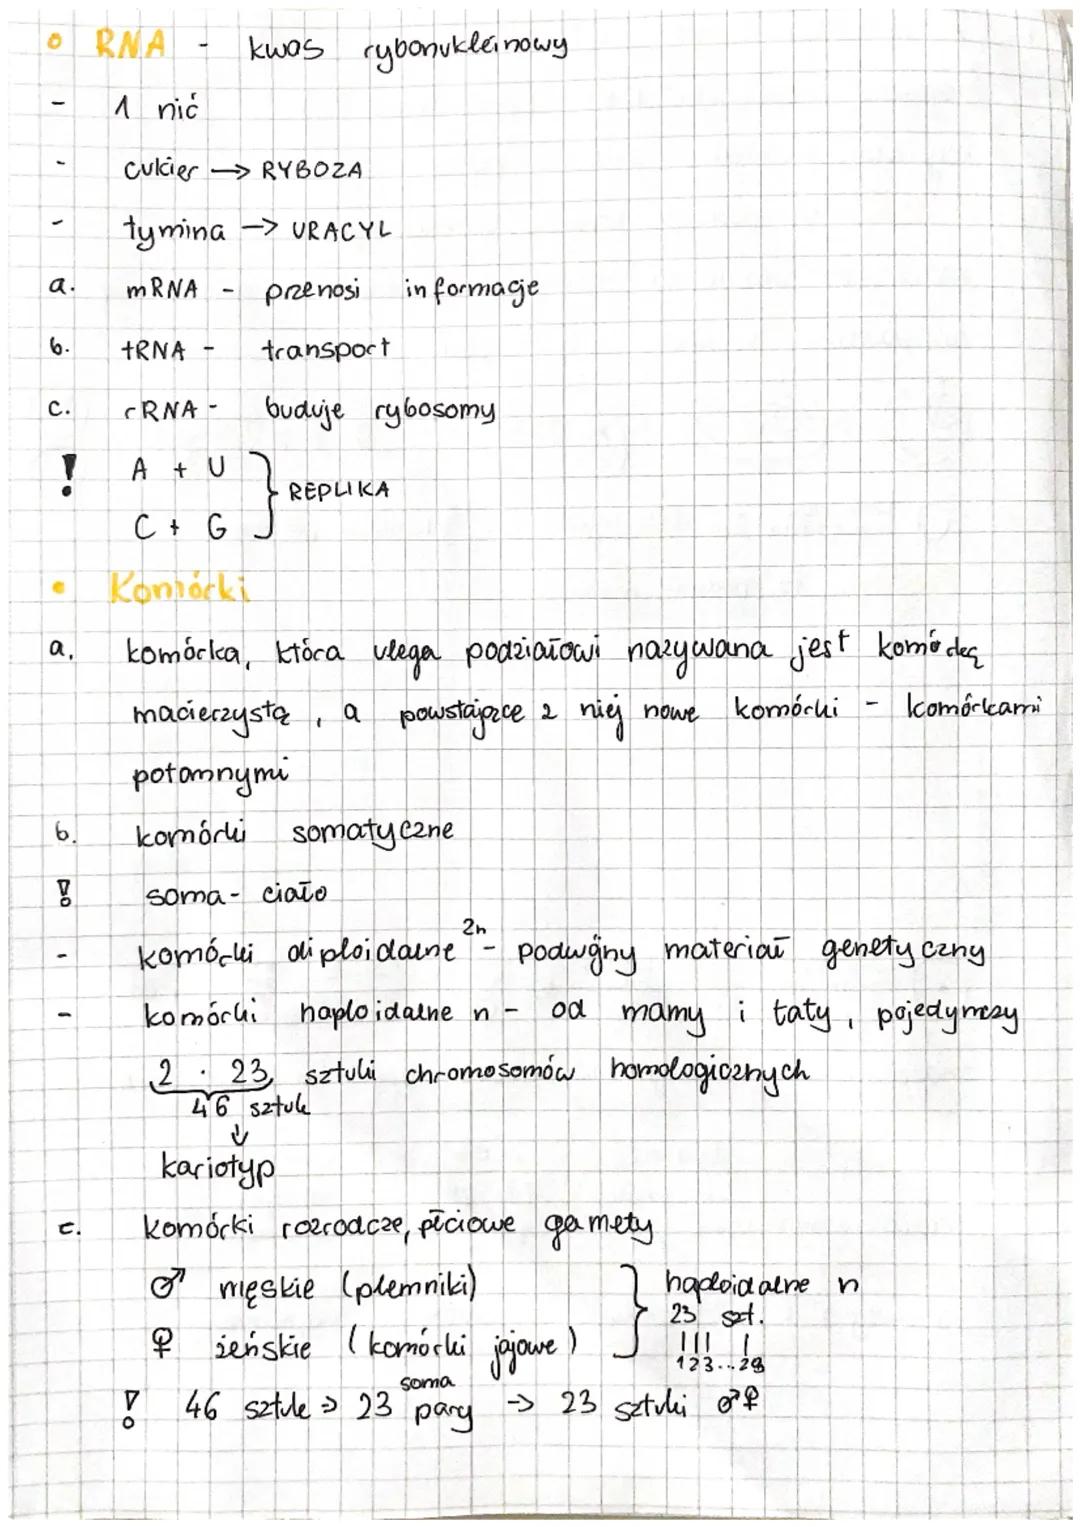 RNA - kwas rybonukleinowy
- 1 nić
- cukier → RYBOZA
- tymina → URACYL
a. mRNA - przenosi informacje
b. tRNA - transport
c. rRNA - buduje rybosomy
! A + U
C + G } REPLIKA
Komórki
a. komórka, która ulega podziałowi nazywana jest komórką
macierzystą, a powstające z niej nowe komórki - komórkami
potomnymi
b. komórki somatyczne
! soma - ciało
- komórki diploidalne 2n - podwójny materiał genetyczny
- komórki haploidalne n - od mamy i taty, pojedynczy
2 · 23 sztuki chromosomów homologicznych
46 sztuk
↓
kariotyp
c. komórki rozrodcze, płciowe gamety
♂ męskie (plemniki) } haploidalne n
23 szt.
♀ żeńskie (komórki jajowe)
1 2 3...23
! 46 sztuk → 23 soma pary → 23 sztuki ♂♀